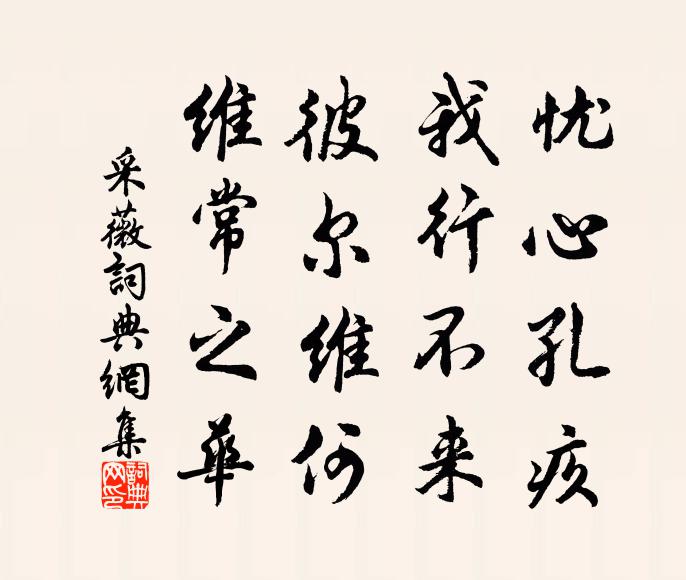 忧心孔疚
我行不来
彼尔维何
维常之华
采薇詞典網集
詞典网印